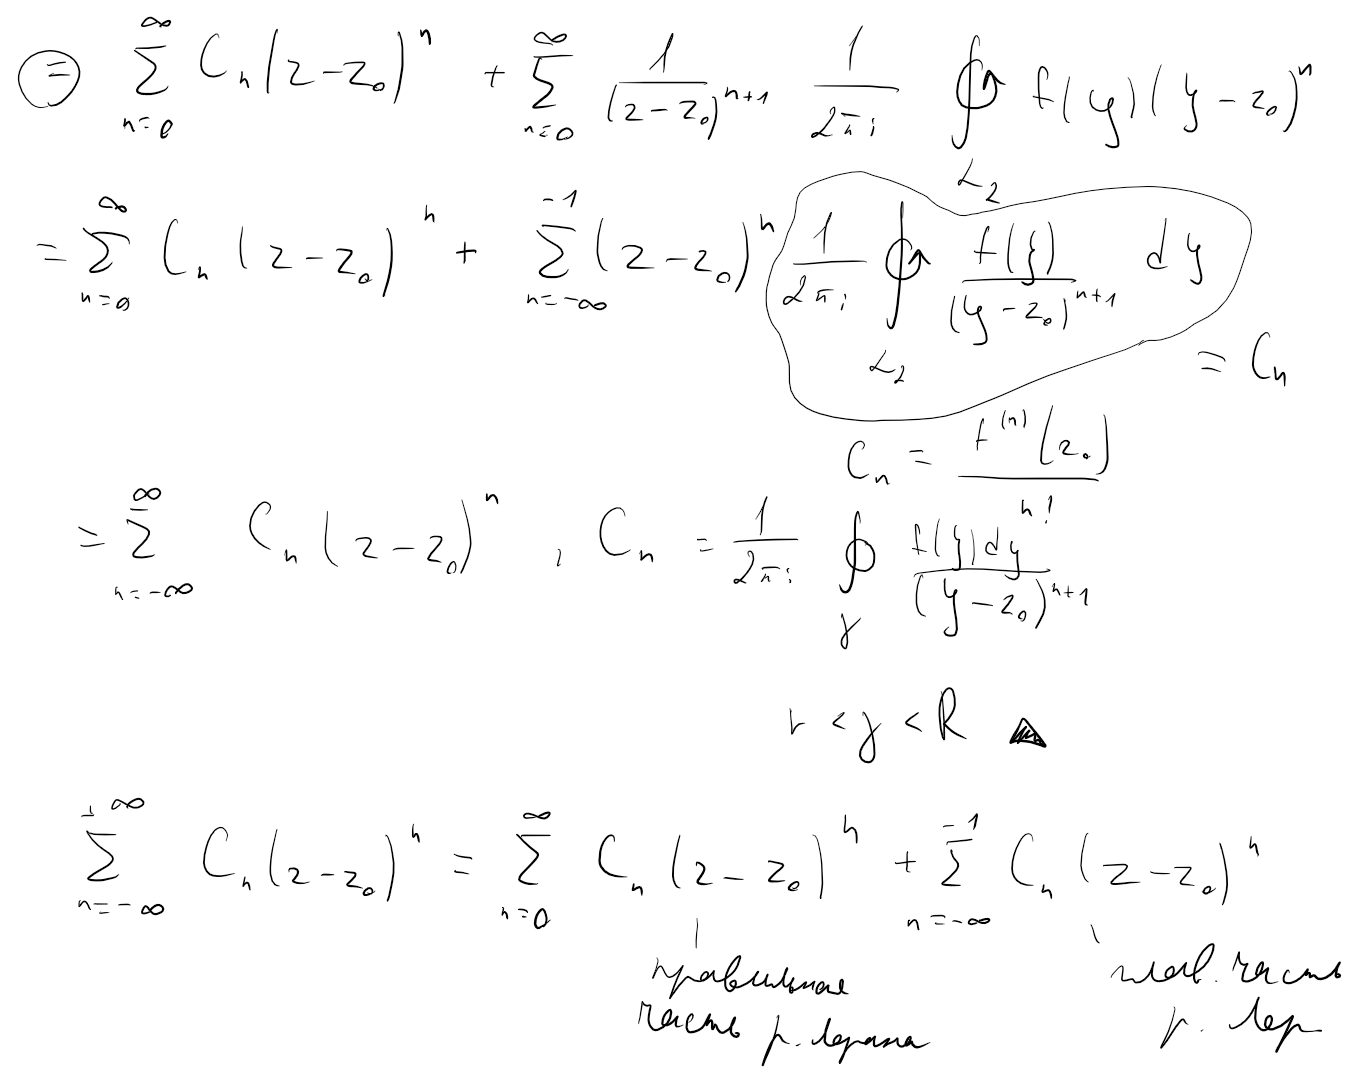 = \sum_{n=0}^{\infty} C_n (z-z_0)^n + \sum_{n=0}^{\infty} \frac{1}{(z-z_0)^{n+1}} \frac{1}{2\pi i} \oint_{L_2} f(\xi)(\xi-z_0)^n
= \sum_{n=0}^{\infty} C_n (z-z_0)^n + \sum_{n=-\infty}^{-1} (z-z_0)^n \frac{1}{2\pi i} \oint_{L_2} \frac{f(\xi)}{(\xi-z_0)^{n+1}} d\xi
= C_n
C_n = \frac{f^{(n)}(z_0)}{n!}
= \sum_{n=-\infty}^{\infty} C_n (z-z_0)^n , C_n = \frac{1}{2\pi i} \oint_{\gamma} \frac{f(\xi) d\xi}{(\xi-z_0)^{n+1}}
r < \gamma < R
\sum_{n=-\infty}^{+\infty} C_n (z-z_0)^n = \sum_{n=0}^{\infty} C_n (z-z_0)^n + \sum_{n=-\infty}^{-1} C_n (z-z_0)^n
правильная
часть р. Лорана
глав. часть
р. Лор